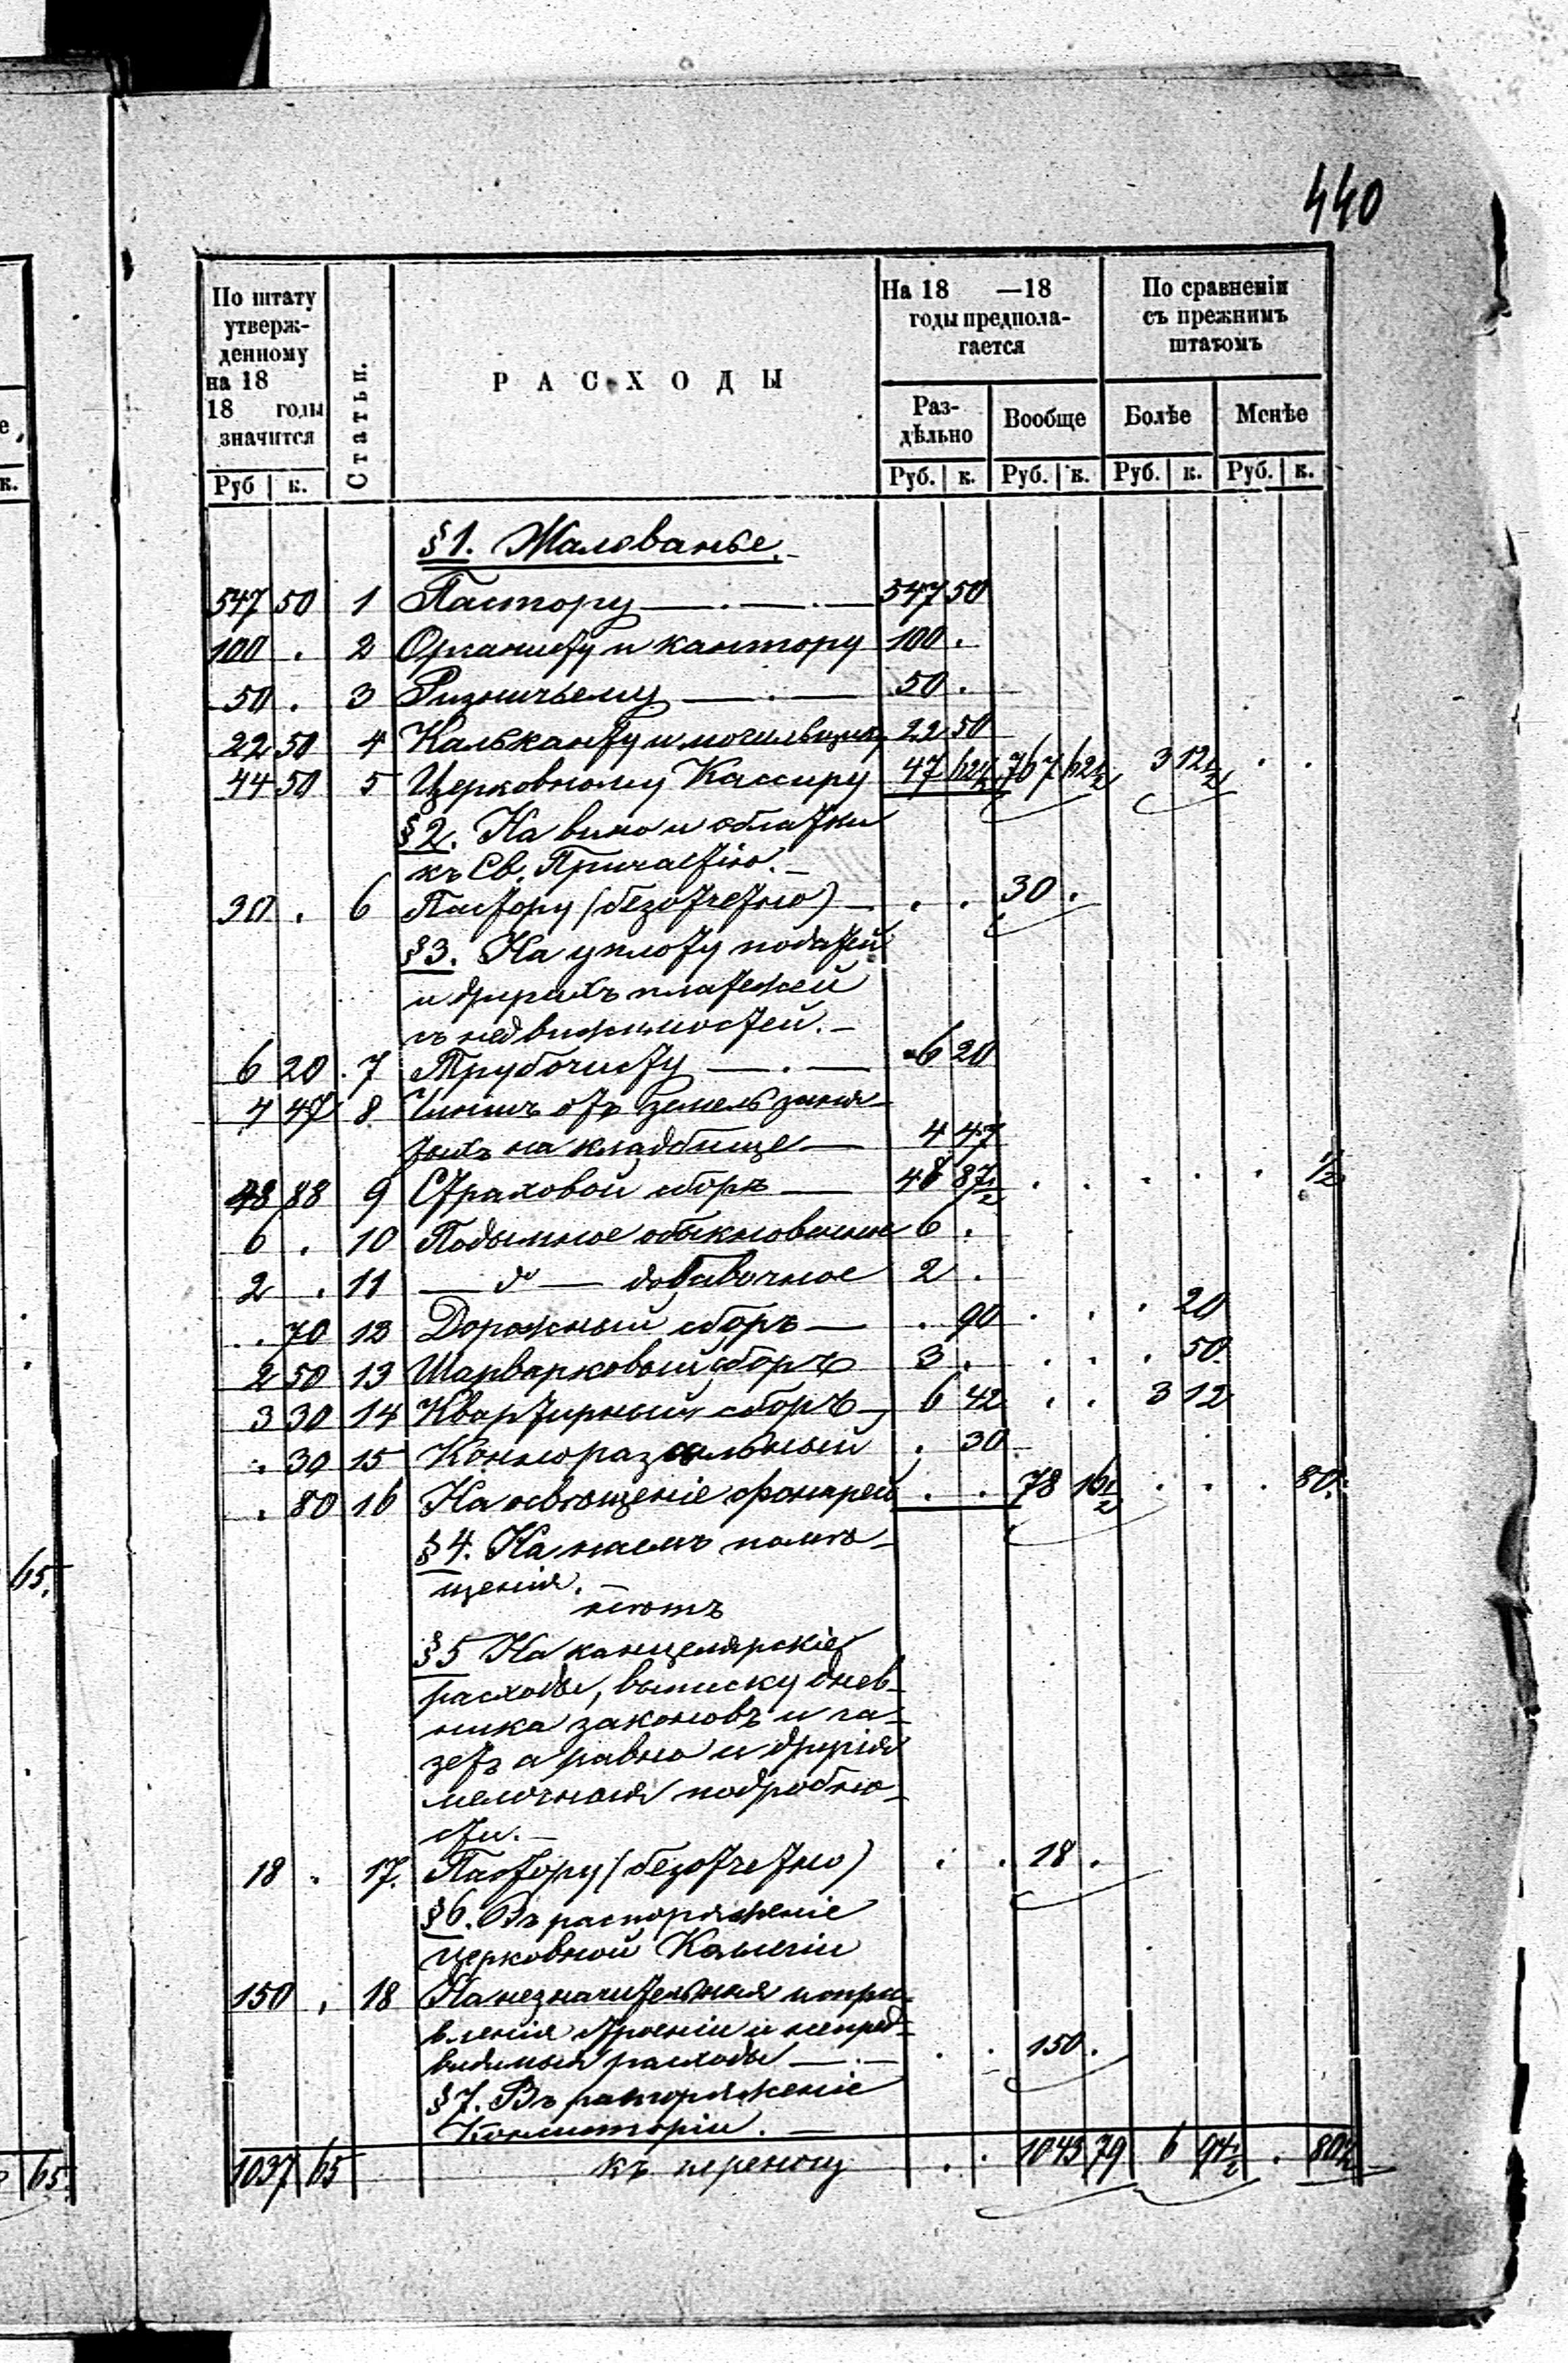 440
По штату утверж-денному на 18 18 годы значится
Статьи.
РАСХОДЫ
На 18 —18 годы предпола-гается
По сравненіи съ прежнимъ штатомъ
Раз-дѣльно
Вообще
Болѣе
Менѣе
Руб к. Руб. к. Руб. к. Руб. к. Руб. к.
§1. Жалованье.
547 50 1 Пастору 547 50
100 . 2 Органисту и кантору 100 .
50 . 3 Ризничьему 50 .
22 50 4 Кальканту и могильщику 22 50
44 50 5 Церковному Кассиру 47 62½ 767 62½ 3 12½ . .
§2. На вино и облатки
къ Св. Причастію.
30 . 6 Пастору (безотчетно) . . 30 .
§3. На уплату податей
и другихъ платежей
съ недвижимостей.
6 20 7 Трубочисту 6 20
4 47 8 Чиншъ отъ земель заня-
тыхъ на кладбище 4 47
48 88 9 Страховой сборъ 48 87½ . . . . . ½
6 . 10 Подымное обыкновенное 6 .
2 . 11 — dº — добавочное 2 .
. 70 12 Дорожный сборъ . 90 . . . 20
2 50 13 Шарварковый сборъ 3 . . . . 50
3 30 14 Квартирный сборъ 6 42 . . 3 12
. 30 15 . 30
. 80 16 На освѣщеніе фонарей . . 78 16½ . . . 80.
§4. На наемъ помѣ-
щенія.
нѣтъ
§5 На канцелярскіе
расходы, выписку днев-
ника законовъ и га-
зетъ а равно и другія
мелочныя подробно-
сти.
18 . 17. Пастору (безотчетно) . . 18 .
§6. Въ распоряженіе
церковной Коллегіи
150 . 18 На незначительныя попра-
вленія строеніи и непред-
видимыя расходы . . 150 .
§7. Въ распоряженіе
Консисторіи.
1037 65 къ переносу . . 1043 79 6 94½ . 80½
65.
65